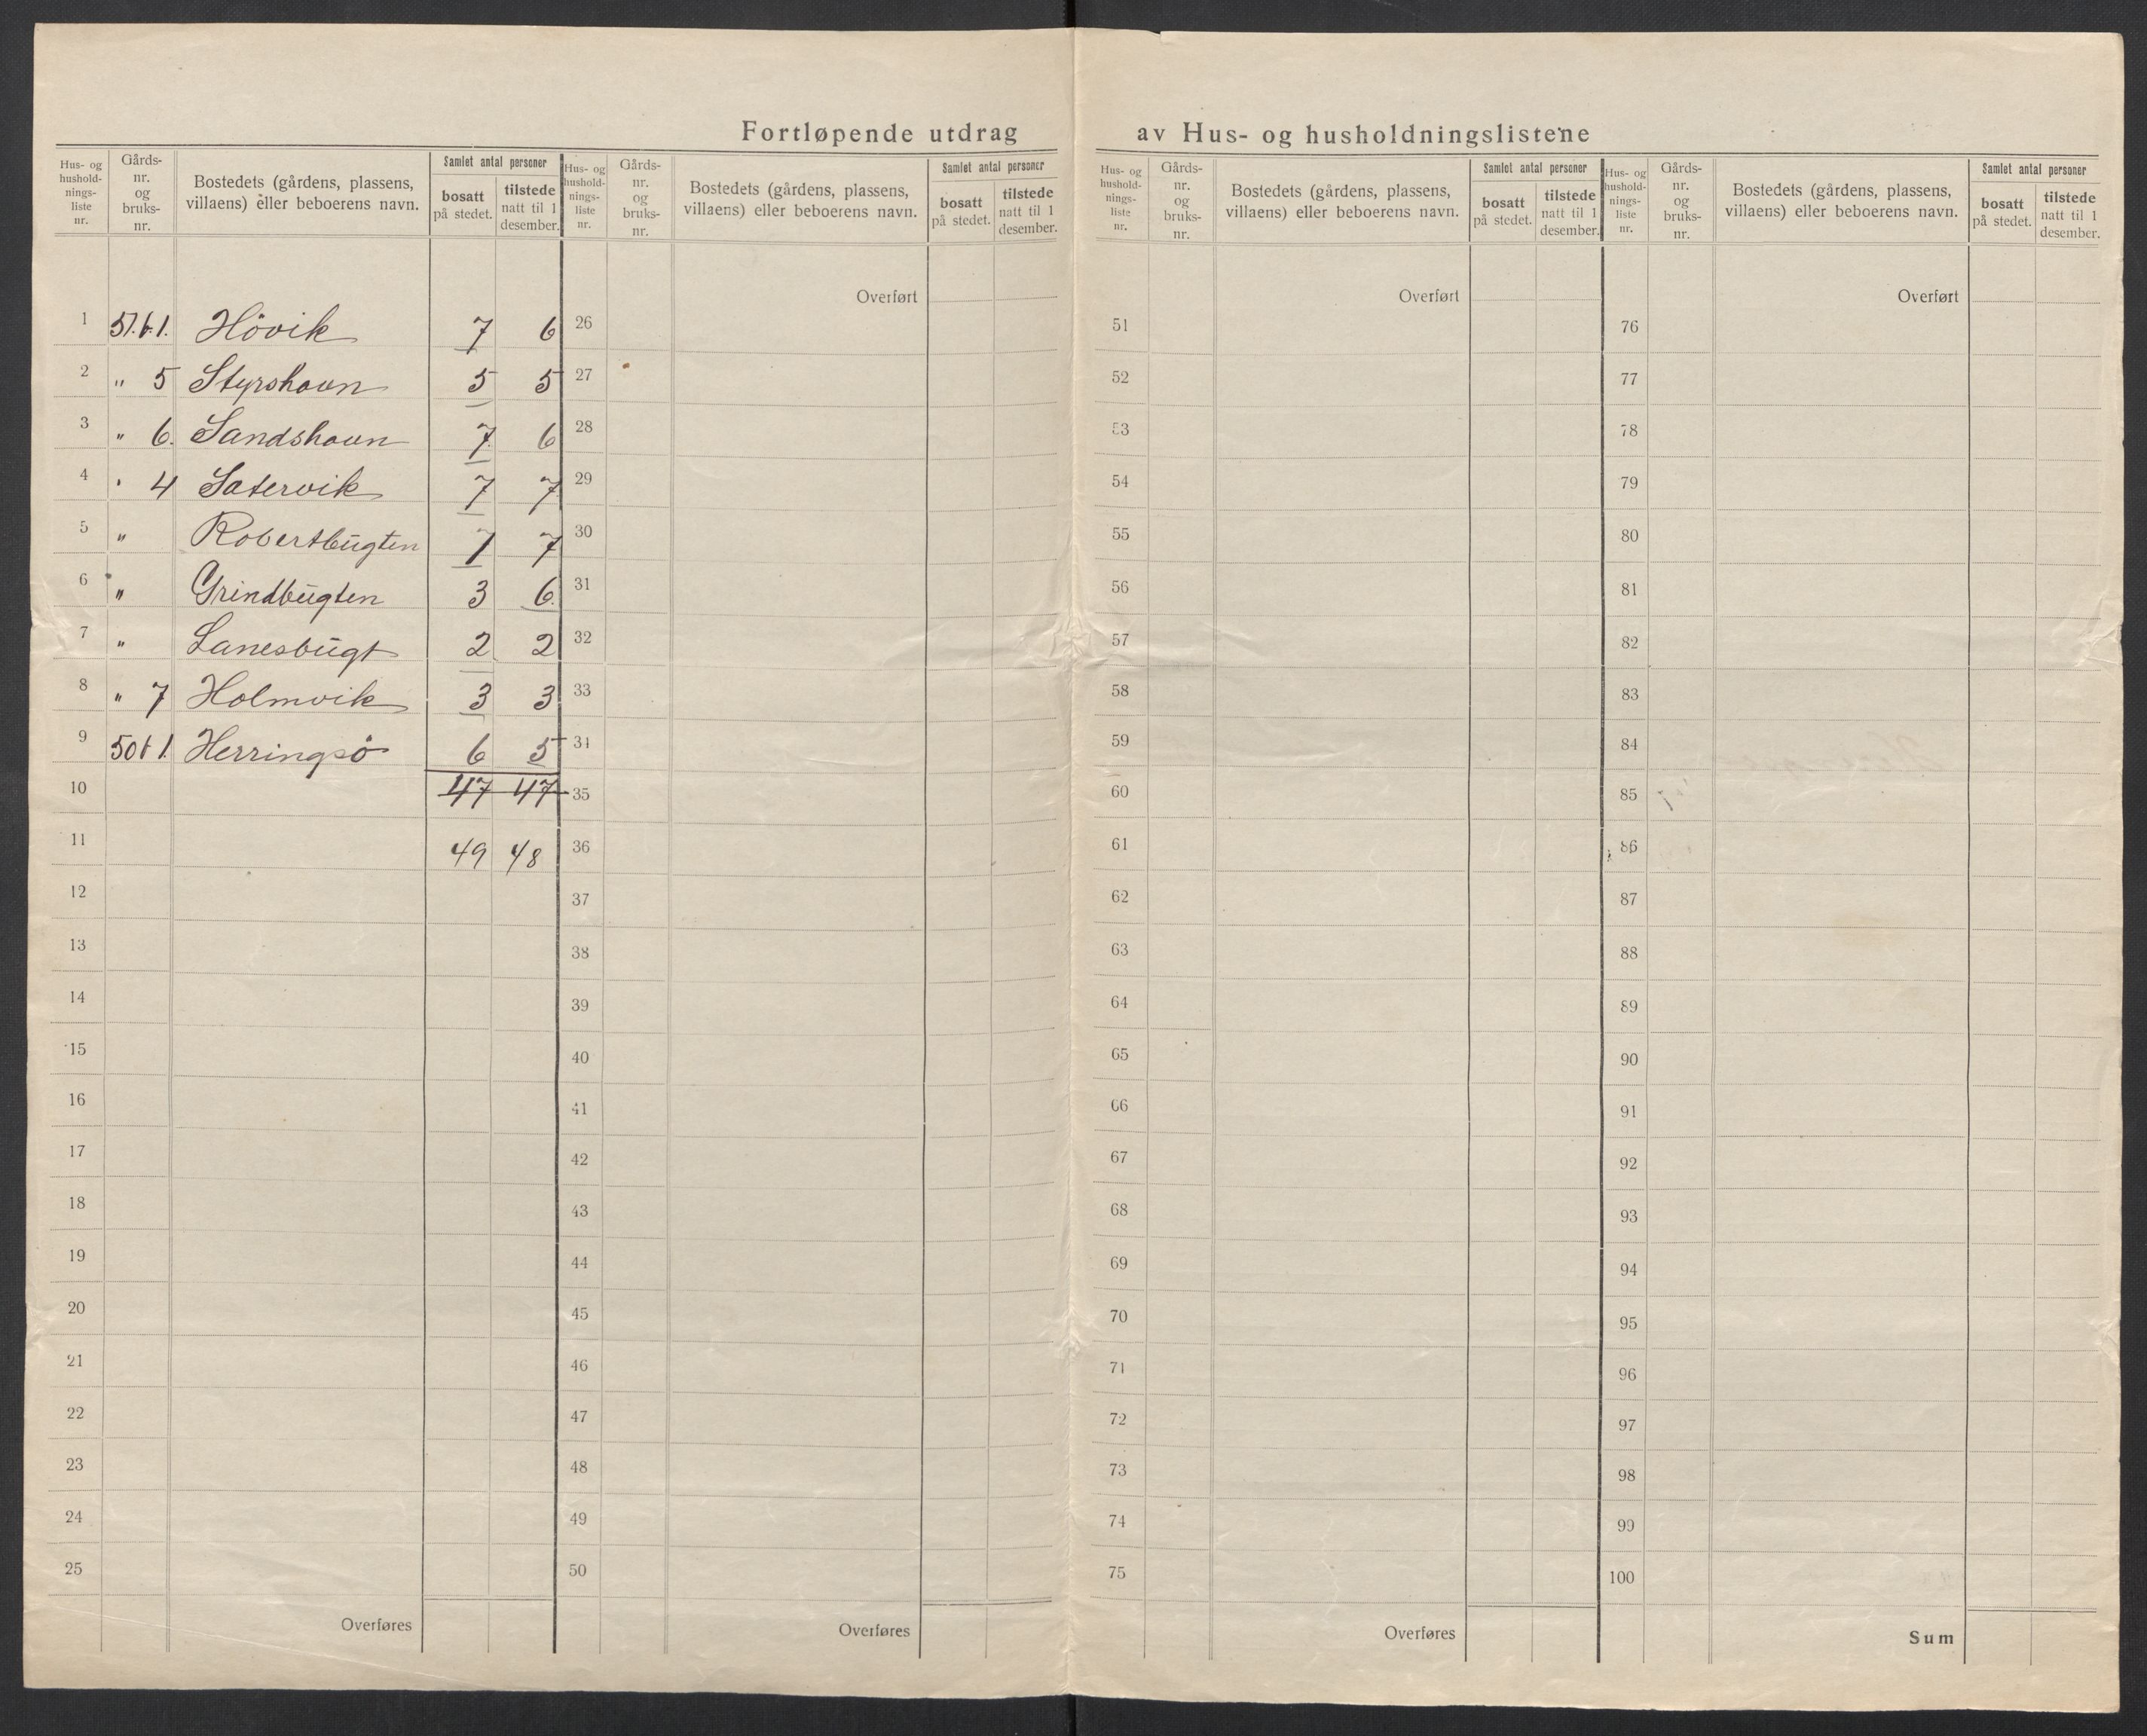 Fortløpende utdrag av Hus- og husholdningslistene
Hus- og husholdnings-liste nr.
Gårds-nr. og bruks-nr.
Bostedets (gårdens, plassens, villaens) eller beboerens navn.
Samlet antal personer
bosatt på stedet.
tilstede natt til 1 desember.
Hus- og husholdnings-liste nr.
Gårds-nr. og bruks-nr.
Bostedets (gårdens, plassens, villaens) eller beboerens navn.
Samlet antal personer
bosatt på stedet.
tilstede natt til 1 desember.
Hus- og husholdnings-liste nr.
Gårds-nr. og bruks-nr.
Bostedets (gårdens, plassens, villaens) eller beboerens navn.
Samlet antal personer
bosatt på stedet.
tilstede natt til 1 desember.
Hus- og husholdnings-liste nr.
Gårds-nr. og bruks-nr.
Bostedets (gårdens, plassens, villaens) eller beboerens navn.
Samlet antal personer
bosatt på stedet.
tilstede natt til 1 desember.
1 51.b.1. Hövik 7 6
2 " 5 Styrshavn 5 5
3 " 6. Sandshavn 7 6
4 " 4 Satervik 7 7
5 " Robertbugten 7
6 " Grindbugten 3 6
7 " Lanesbugt 2 2
8 " 7 Holmvik 3 3
9 Herringsö 6 5
10 47 47
11 49 48
12
13
14
15
16
17
18
19
20
21
22
23
24
25
Overføres
Overført
26
27
28
29
30
31
32
33
34
35
36
37
38
39
40
41
42
43
44
45
46
47
48
49
50
Overføres
Overført
51
52
53
54
55
56
57
58
59
60
61
62
63
64
65
66
67
68
69
70
71
72
73
74
75
Overføres
Overført
76
77
78
79
80
81
82
83
84
85
86
87
88
89
90
91
92
93
94
95
96
97
98
99
100
Sum